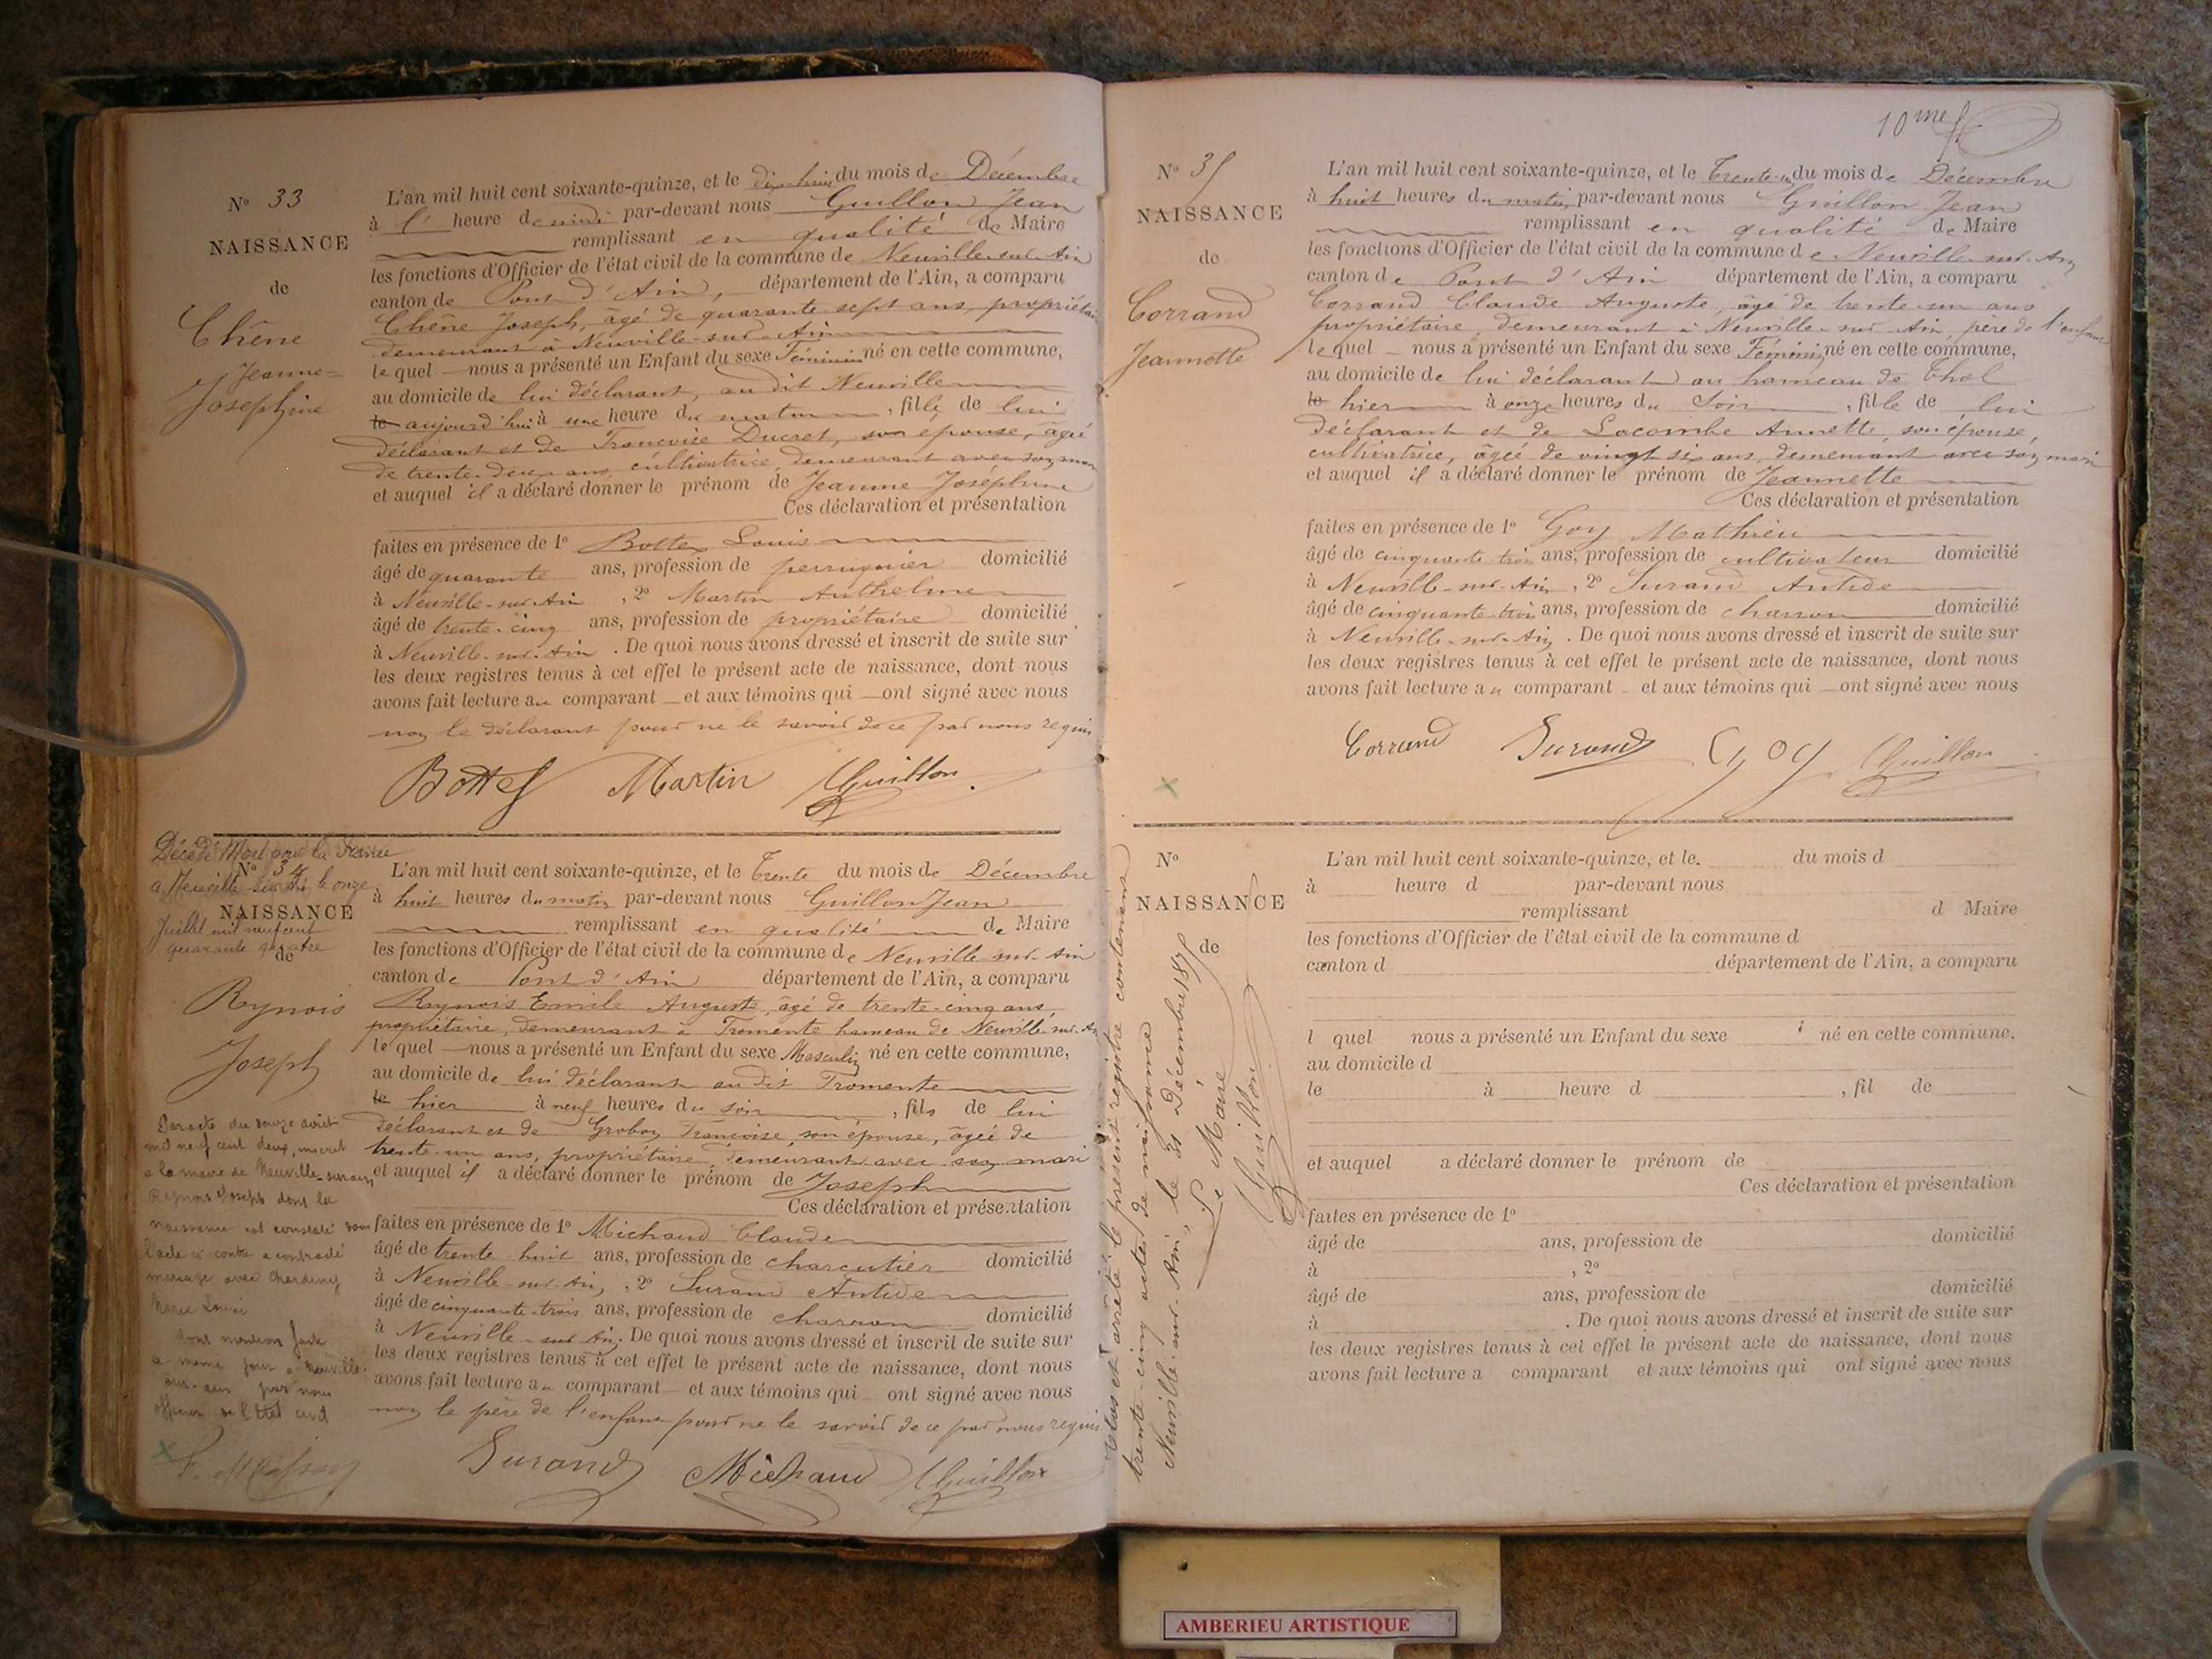 N° 33
NAISSANCE
de
Chêne
Jeanne=
Joséphine
L'an mil huit cent soixante-quinze, et le dix huit du mois de Décembre
à l' heure de midi par-devant nous Guillon Jean
remplissant en qualité de Maire
les fonctions d'Officier de l'état civil de la commune de Neuville-sur-Ain
canton de Pont d'Ain, département de l'Ain, a comparu
Chêne Joseph, âgé de quarante sept ans, propriétaire
demeurant à Neuville-sur-Ain
lequel nous a présenté un Enfant du sexe Féminin né en cette commune,
au domicile de lui déclarant, au dit Neuville
le aujourd'hui à une heure du matin, fille de lui
déclarant et de Francoise Ducret, son épouse, âgée
de trente-deux ans, cultivatrice, demeurant avec son mari
et auquel il a déclaré donner le prénom de Jeanne Joséphine
Ces déclaration et présentation
faites en présence de 1° Bottex Louis
âgé de quarante ans, profession de perruquier domicilié
à Neuville-sur-Ain, 2° Martin Anthelme
âgé de trente-cinq ans, profession de propriétaire domicilié
à Neuville-sur-Ain. De quoi nous avons dressé et inscrit de suite sur
les deux registres tenus à cet effet le présent acte de naissance, dont nous
avons fait lecture au comparant et aux témoins qui ont signé avec nous
non le déclarant pour ne le savoir de ce par nous requis
Martin Guillon
Décédé Mort pour la France
N° 34
a Neuville sur Ain le onze
NAISSANCE
Juillet mil neuf cent
quarante quatre
de
Reynois
Joseph
L'an mil huit cent soixante-quinze, et le Trente du mois de Décembre
à huit heures du matin par-devant nous Guillon Jean
remplissant en qualité de Maire
les fonctions d'Officier de l'état civil de la commune de Neuville-sur-Ain
canton de Pont d'Ain département de l'Ain, a comparu
Reynois Emile Auguste, âgé de trente-cinq ans,
propriétaire, demeurant à Fromente hameau de Neuville-sur-Ain
lequel nous a présenté un Enfant du sexe Masculin né en cette commune,
au domicile de lui déclarant au dit Fromente
le hier à neuf heures du soir, fils de lui
déclarant et de Grobon Francoise, son épouse, âgée de
trente-un ans, propriétaire, demeurant avec son mari
et auquel il a déclaré donner le prénom de Joseph
Ces déclaration et présentation
faites en présence de 1° Michaud Claude
âgé de trente-huit ans, profession de charcutier domicilié
à Neuville-sur-Ain, 2° Durand Antide
âgé de cinquante-trois ans, profession de charron domicilié
à Neuville-sur-Ain. De quoi nous avons dressé et inscrit de suite sur
les deux registres tenus à cet effet le présent acte de naissance, dont nous
avons fait lecture au comparant et aux témoins qui ont signé avec nous
non le père de l'enfant pour ne le savoir de ce par nous requis
Durand Michaud Guillon
Par acte du douze août
mil neuf cent deux, inscrit
a la mairie de Neuville-sur-ain,
Reynois Joseph dont la
naissance est constaté dans
l'acte ci contre a contracté
mariage avec
Marie
Dont mention faite
a même jour a Neuville-
sur-ain par nous
officier de l'Etat civil
10me f
N° 35
NAISSANCE
de
Corrand
Jeannette
L'an mil huit cent soixante-quinze, et le Trente-un du mois de Décembre
à huit heures du matin, par-devant nous Guillon Jean
remplissant en qualité de Maire
les fonctions d'Officier de l'état civil de la commune de Neuville-sur-Ain
canton de Pont d'Ain département de l'Ain, a comparu
Corrand Claude Auguste, âgé de trente-un ans
propriétaire, demeurant à Neuville-sur-Ain, père de l'enfant
lequel nous a présenté un Enfant du sexe Féminin né en cette commune,
au domicile de lui déclarant au hameau de Thol
le hier à onze heures du Soir, fille de lui
déclarant et de Lacombe Annette, son épouse,
cultivatrice, âgée de vingt six ans, demeurant avec son mari
et auquel il a déclaré donner le prénom de Jeannette
Ces déclaration et présentation
faites en présence de 1° Goy Mathieu
âgé de cinquante trois ans, profession de cultivateur domicilié
à Neuville-sur-Ain, 2° Durand Antide
âgé de cinquante-trois ans, profession de charron domicilié
à Neuville-sur-Ain. De quoi nous avons dressé et inscrit de suite sur
les deux registres tenus à cet effet le présent acte de naissance, dont nous
avons fait lecture au comparant et aux témoins qui ont signé avec nous
Corrand Durand Goy Guillon
Clos et arrêté le présent registre contenant
trente-cinq actes de naissance
Neuville-sur-Ain, le 31 Décembre 1875
Le Maire
Guillon
N°
NAISSANCE
de
L'an mil huit cent soixante-quinze, et le. du mois d
à heure d par-devant nous
remplissant d Maire
les fonctions d'Officier de l'état civil de la commune d
canton d département de l'Ain, a comparu
l quel nous a présenté un Enfant du sexe né en cette commune,
au domicile d
le à heure d , fil de
et auquel a déclaré donner le prénom de
Ces déclaration et présentation
faites en présence de 1°
âgé de ans, profession de domicilié
à , 2°
âgé de ans, profession de domicilié
à . De quoi nous avons dressé et inscrit de suite sur
les deux registres tenus à cet effet le présent acte de naissance, dont nous
avons fait lecture a comparant et aux témoins qui ont signé avec nous
AMBERIEU ARTISTIQUE